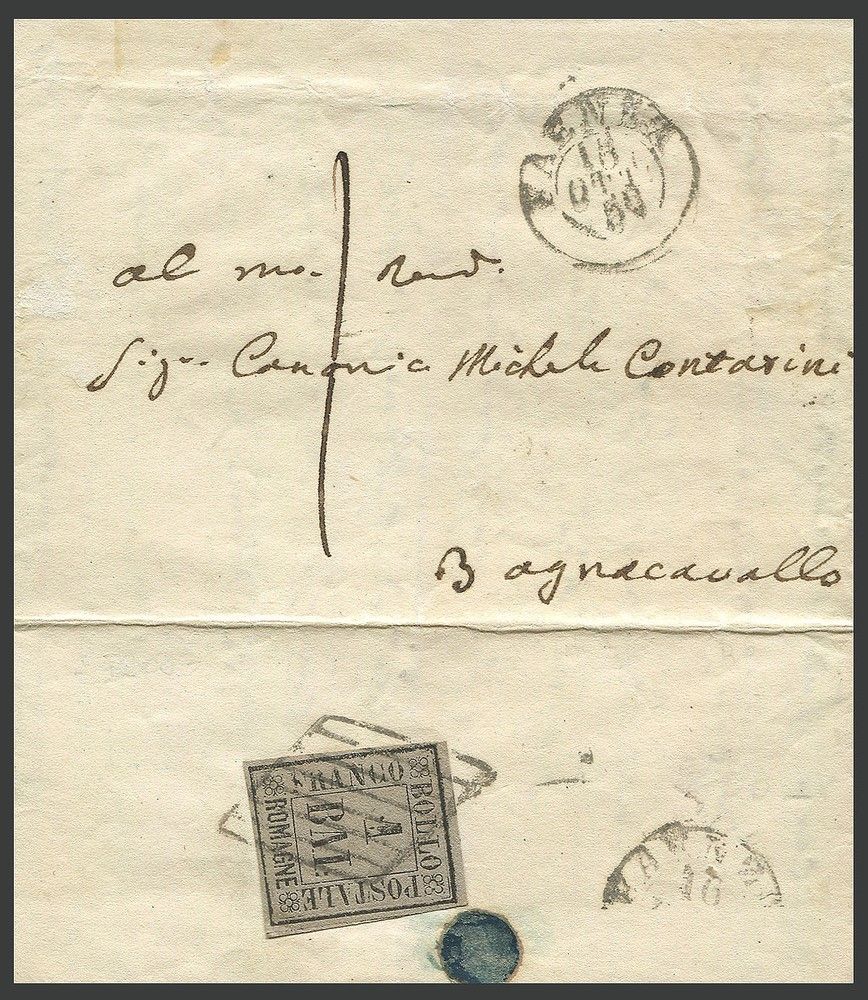 FAENZA
18
OTT
60
1
al mo. Revd.
Sigr. Canonico Michele Contarini
Bagnacavallo
FRANCO
BOLLO
POSTALE
ROMAGNE
1
BAI